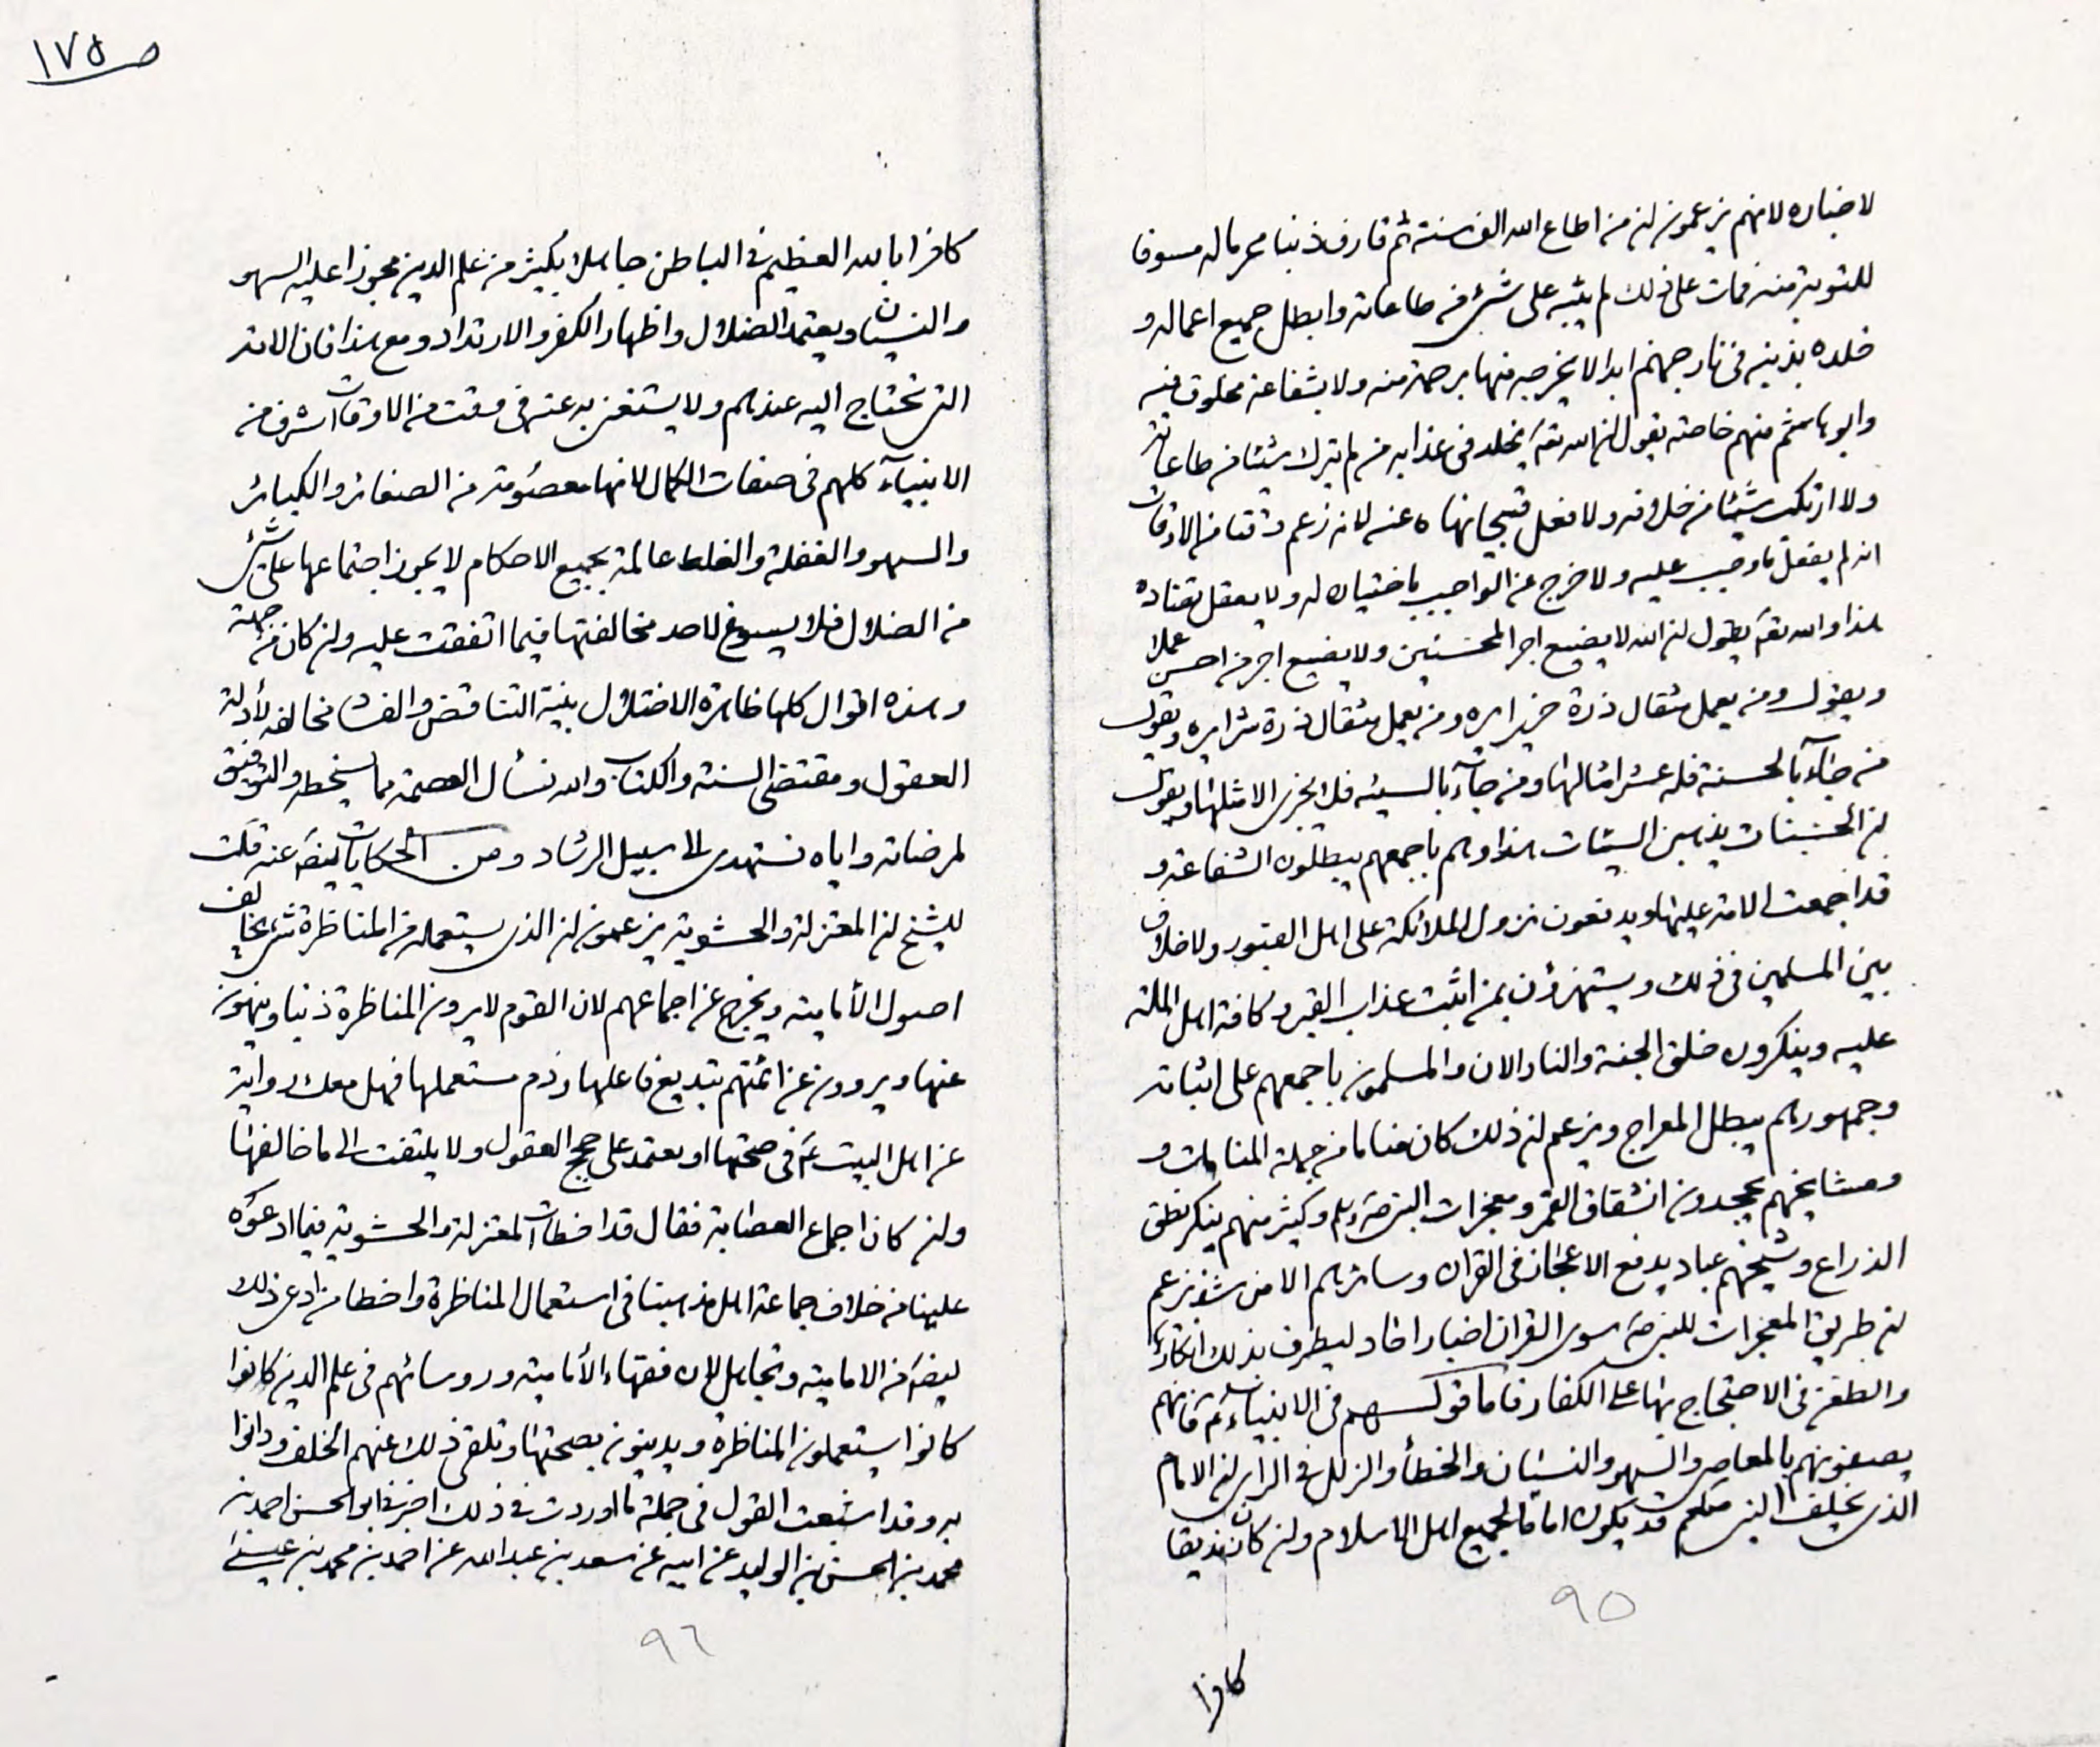 ص ١٧٥
لاخباره لانهم يزعمون ان من اطاع الله الف سنة ثم قارف ذنبا محرما له مسوفا
للتوبة منه فمات على ذلك لم يثبه على شئ من طاعاته وابطل جميع اعماله و
خلده بذنبه فى نار جهنم ابدا لا يخرجه منها برحمة منه ولا بشفاعة مخلوق فيه
وابو هاشم منهم خاصة يقول ان الله تعه يخلد فى عذابه من لم يترك شيئا من طاعاته
ولا ارتكب شيئا من خلافه ولا فعل قبيحا نهاه عنه لانه زعم وقتا من الاوقات
انه لم يفعل ما وجب عليه ولا خرج عن الواجب باختيار له ولا بفعل يضاده
هذا والله تعه يقول ان الله لا يضيع اجر المحسنين ولا يضيع اجر من احسن عملا
ويقول ومن يعمل مثقال ذرة خيرا يره ومن يعمل مثقال ذرة شرا يره ويقول
من جاء بالحسنة فله عشر امثالها ومن جاء بالسيئه فلا يجزى الا مثلها ويقول
ان الحسنات يذهبن السيئات هذا وهم باجمعهم يبطلون الشفاعة و
قد اجمعت الامة عليها ويدفعون نزول الملائكة على اهل القبور ولا خلاف
بين المسلمين فى ذلك ويستهزؤن بمن اثبت عذاب القبر وكافة اهل الملة
عليه وينكرون خلق الجنة والنار الان والمسلمون باجمعهم على اثباته
وجمهورهم يبطل المعراج ويزعم ان ذلك كان مناما من جملة المنامات و
ومشايخهم يجحدون انشقاق القمر ومعجزات النبى وكثير منهم ينكر نطق
الذراع وشيخهم عباد يدفع الاعجاز فى القران وسائرهم الا من شذ يزعم
ان طريق المعجزات للنبى سوى القران اخبار احاد ليطرف بذلك انكاره
والطعن فى الاحتجاج بها على الكفار فاما قولهم فى الانبياء فانهم
يصفونهم بالمعاصى والسهو والنسيان والخطأ والزلل فى الراى ان الامام
الذى يخلف النبى قد يكون اماما لجميع اهل الاسلام وان كان زنديقا
٩٥
كافرا
كافرا بالله العظيم فى الباطن جاهلا بكثير من علم الدين مجوزا عليه السهو
والنسيان ويعتمد الضلال واظهار الكفر والارتداد ومع هذا فان الامة
التى تحتاج اليه عندهم ولا يستغنى به عنه فى وقت من الاوقات اشرف من
الانبياء كلهم فى صفات الكمال لانها معصومة من الصغائر والكبائر
والسهو والغفلة والغلط عالمة بجميع الاحكام لا يجوز اجتماعها على شئ
من الضلال فلا يسوغ لاحد مخالفتها فيما اتفقت عليه وان كان من جملة
وهذه اقوال كلها ظاهرة الاختلال بينة التناقض والفسا مخالفه لأدلة
العقول ومقتضى السنة والكتاب والله نسأل العصمة مما يسخطه والتوفيق
لمرضاته واياه نستهدى الى سبيل الرشاد ومن الحكايات ايضا عنه قلت
للشيخ ان المعتزلة والحشوية يزعمون ان الذى يستعمله من المناظرة شئ يخالف
اصول الأمامية ويخرج عن اجماعهم لان القوم لا يرون المناظرة دينا وينهون
عنها ويروون عن ائمتهم تبديع فاعلها وذم مستعملها فهل معك رواية
عن اهل البيت ع فى صحتها او يعتمد على حجج العقول ولا يلتفت الى ما خالفها
وان كان اجماع العصابة فقال قد اخطات المعتزلة والحشوية فيما ادعوه
علينا من خلاف جماعة اهل مذهبنا فى استعمال المناظرة واخطا من ادعى ذلك
ايضا من الامامية وتجاهل لان فقهاء الأمامية وروسائهم فى علم الدين كانوا
كانوا يستعملون المناظرة ويدينون بصحتها وتلقى ذلك عنهم الخلف ودانوا
به وقد اشبعت القول فى جملة ما اوردت فى ذلك اخبرنى ابو الحسن احمد بن
محمد بن الحسن بن الوليد عن ابيه عن سعد بن عبد الله عن احمد بن محمد بن عيسى
٩٦